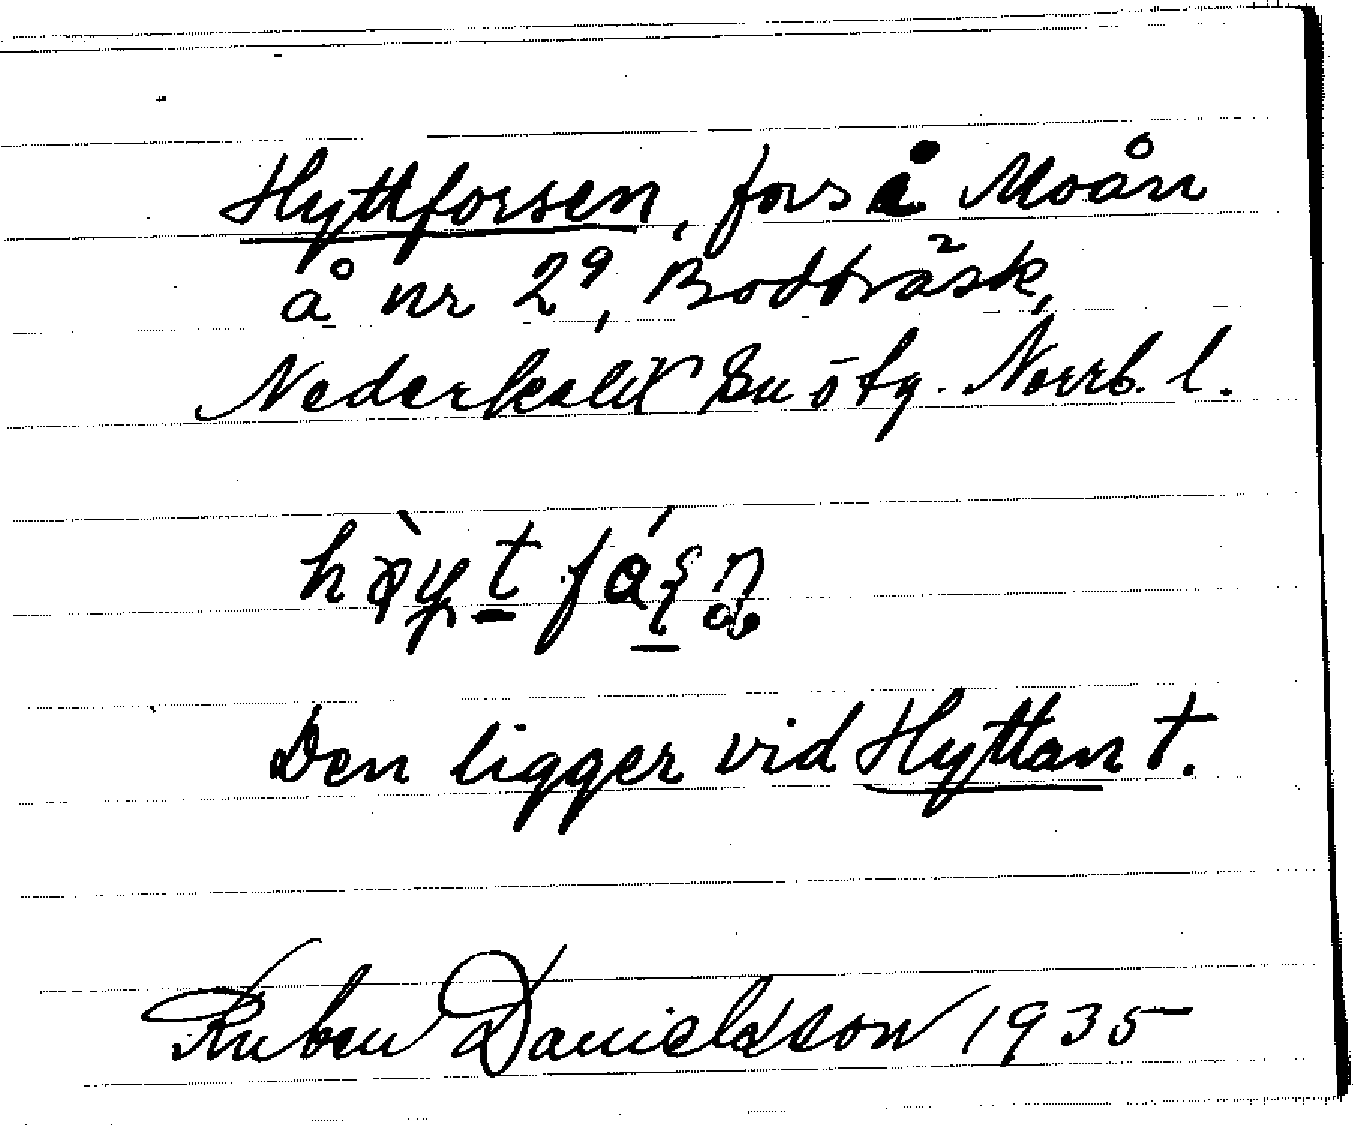 Hyttforsen, fors å Moån
å nr 29, Bodträsk,
Nederkalix sn ö fg. Norrb. l.
Den ligger vid Hyttan t.
Ruben Danielsson 1935